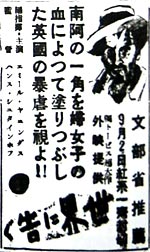 文部省推薦
9月2日紅系一斉封切
独トービス超特作
外映提供
南阿の一角を婦女子の
血によつて塗りつぶし
た英国の暴虐を視よ!!
総指揮・主演 エミール・ヤニングス
監督 ハンス・シュタインホフ
世界に告ぐ